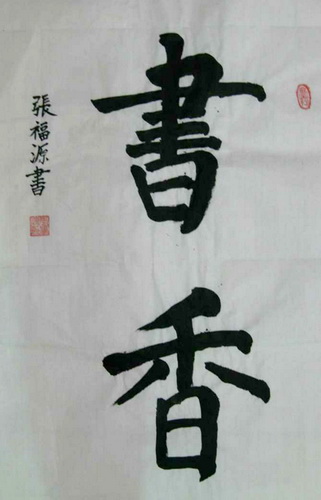 書香
張福源書